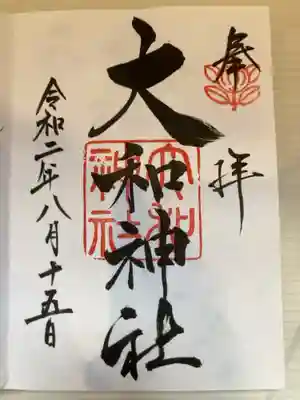 奉拝
大和神社
大和
神社
令和二年八月十五日